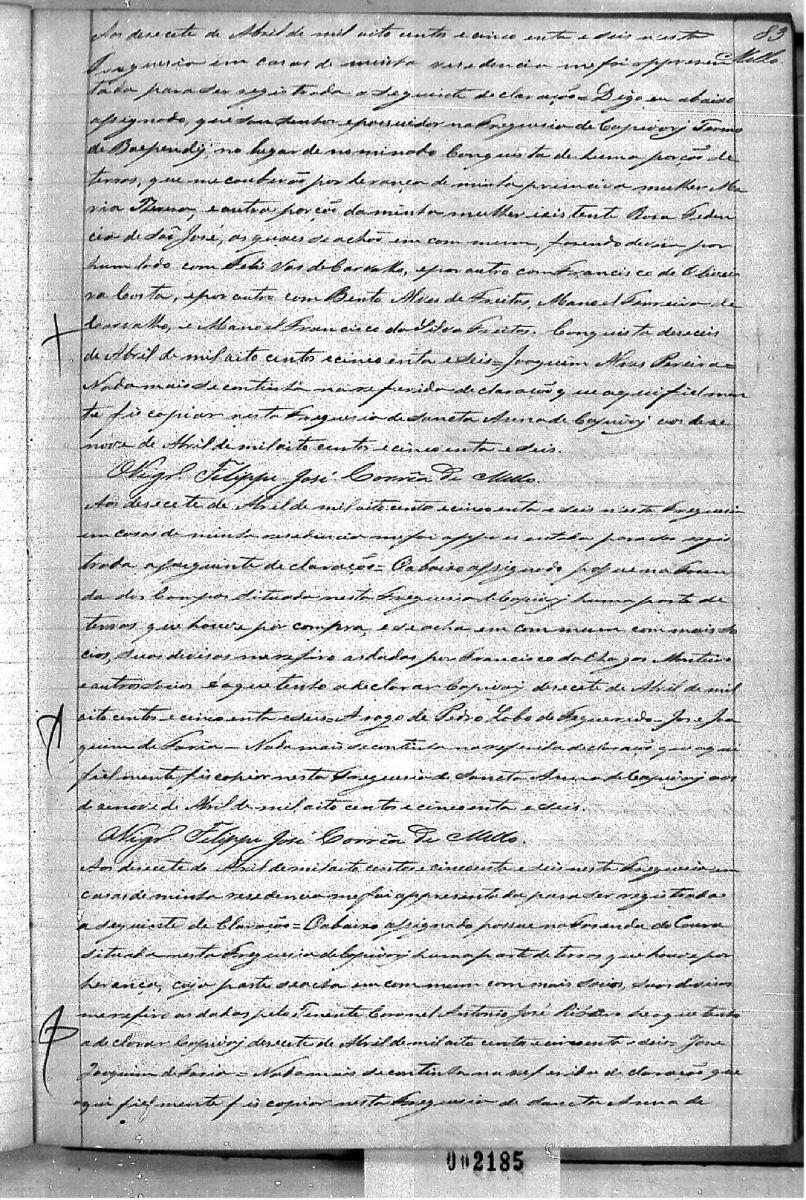 83
Mello
Aos desecete de Abril de mil oito centos e cinco enta e seis n'esta
Freguesia em casas de minha residencia me foi appresen
tada para ser registrada a seguinte declaração = Digo eu abaixo
assignado, que sou senhor e possuidor na Freguesia de Capivary Termo
de Baependy, no lugar denominado Conquista de huma porção de
terras, que me couberão por herança de minha primeira mulher Ma
ria Theresa, e outra porção da minha mulher existente Rosa Feden
cia de São José, as quaes se achão em commum, fasendo devisa por
hum lado com Felis Vas de Carvalho, e por outro com Francisco de Olivei
ra Costa, e por outro com Bento Alves de Freitas, Manoel Ferreira de
Carvalho, e Manoel Francisco da Silva Freitas. Conquista deseceis
de Abril de mil oito centos e cinco enta e seis = Joaquim Alves Pereira =
Nada mais se continha na referida declaração que aqui fielmen
te fis copiar nesta Freguesia de Sancta Anna de Capivary aos dese
nove de Abril de mil oito centos e cinco enta e seis.
O Vigrº Filippe José Corrêa de Mello.
Aos desecete de Abril de mil oito cento e cinco enta e seis n'esta Freguesia
em casas de minha residencia me foi appresentada para ser regis
trada a seguinte declaração = O abaixo assignado possue na Fasen
da dos Campos situada nesta Freguesia de Capivary huma parte de
terras, que houve por compra, e se acha em commum com mais so
cios, suas divisas me refiro as dadas por Francisco das Chagas Monteiro
e outros socios e o que tenho a declarar Capivary desecete de Abril de mil
oito centos e cinco enta e seis = A rogo de Pedro Lobo de Figueredo = José Joa
quim de Faria = Nada mais se continha na referida declaração que aqui
fielmente fis copiar nesta Freguesia de Sancta Anna de Capivary aos
desenove de Abril de mil oito centos e cinco enta e seis.
O Vigrº Filippe José Corrêa de Mello.
Aos desecete de Abril de mil oito centos e cincoenta e seis nesta Freguesia em
casas de minha residencia me foi appresentada para ser registrada
a seguinte declaração = O abaixo assignado possue na Fasenda do
situada nesta Freguesia de Capivary huma parte de terras que houve por
herança, cuja parte se acha em commum com mais socios, suas divisas
me refiro as dadas pelo Tenente Coronel Antonio José Ribeiro he o que tenho
a declarar Capivary desecete de Abril de mil oito centos e cincoenta e seis = José
Joaquim de Faria = Nada mais se continha na referida declaração que
aqui fielmente fis copiar nesta Freguesia de Sancta Anna de
002185